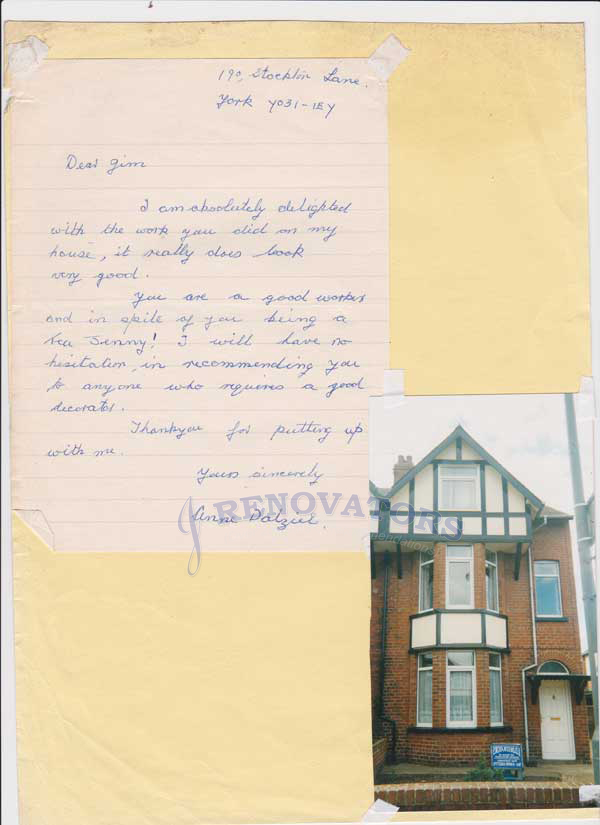 19, Stockton Lane.
York YO31-1EY
Dear Jim
I am absolutely delighted
with the work you did on my
house, it really does look
very good.
You are a good worker
and in spite of you being a
Tea Jenny! I will have no
hesitation, in recommending you
to anyone who requires a good
decorator.
Thankyou for putting up
with me.
Yours sincerely
Anne Dalziel.
J RENOVATORS